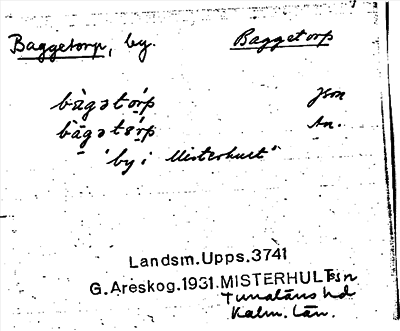 Baggetorp, by. Baggetorp
bàgətórp Json
bàgətórp An.
"by i Misterhult"
Landsm.Upps.3741
G.Areskog.1931.MISTERHULT sn
Tunaläns hd
Kalm. län.